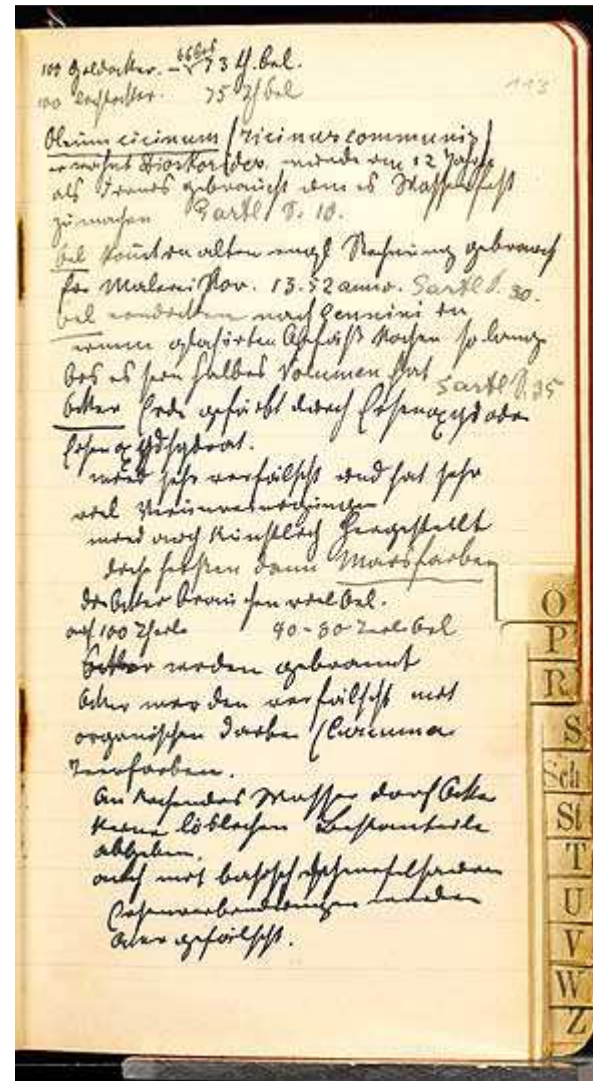 100 Goldocker. – 66 bis 73 th. Oel.
100 Lichtocker. 75 th Oel
113
Oleum cicinum (ricinus communis)
erwähnt Dioskorides. wurde am 12 Jahrh
als Firnis gebraucht um es Wasserfest
zu machen Gartl S. 10.
Oel kommt in alten engl Rechnung gebrauch
für Malerei vor. 1352 anno. Gartl S. 30.
Oel eindicken nach Cennini in
einem glasirten Gefäß kochen so lange
bis es sein halbes Volumen hat Gartl S. 35
Ocker Erde gefärbt durch Eisenoxyd oder
Eisenoxydhydrat.
wird sehr verfälscht und hat sehr
viel Verunreinigungen
wird auch künstlich hergestellt
doch heißen dann Marsfarben
die Ocker brauchen viel Oel.
auf 100 Theile 40-80 Teile Oel
Ocker werden gebrannt
Ocker werden verfälscht mit
organischen Farben (Curcuma
Teerfarben.
An kochendes Wasser darf Ocker
keine löslichen Bestanteile
abgeben.
auch mit basisch schwefelsauren
Eisenverbindungen werden
Ocker gefälscht.
O
P
R
S
Sch
St
T
U
V
W
Z